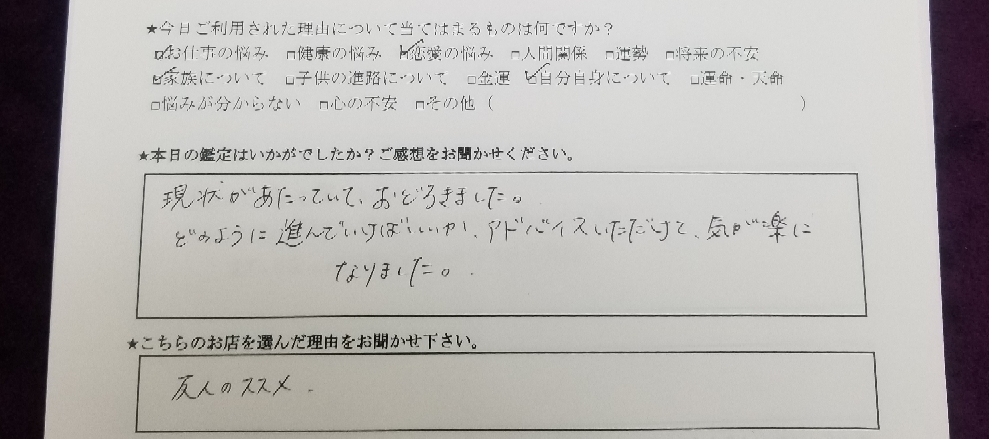 ★今日ご利用された理由について当てはまるものは何ですか?
☑お仕事の悩み □健康の悩み ☑恋愛の悩み □人間関係 □運勢 □将来の不安
☑家族について □子供の進路について □金運 ☑自分自身について □運命・天命
□悩みが分からない □心の不安 □その他( )
★本日の鑑定はいかがでしたか?ご感想をお聞かせください。
現状があたっていて、おどろきました。
どのように進んでいけばいいか、アドバイスいただけて、気が楽に
なりました。
★こちらのお店を選んだ理由をお聞かせ下さい。
友人のススメ.